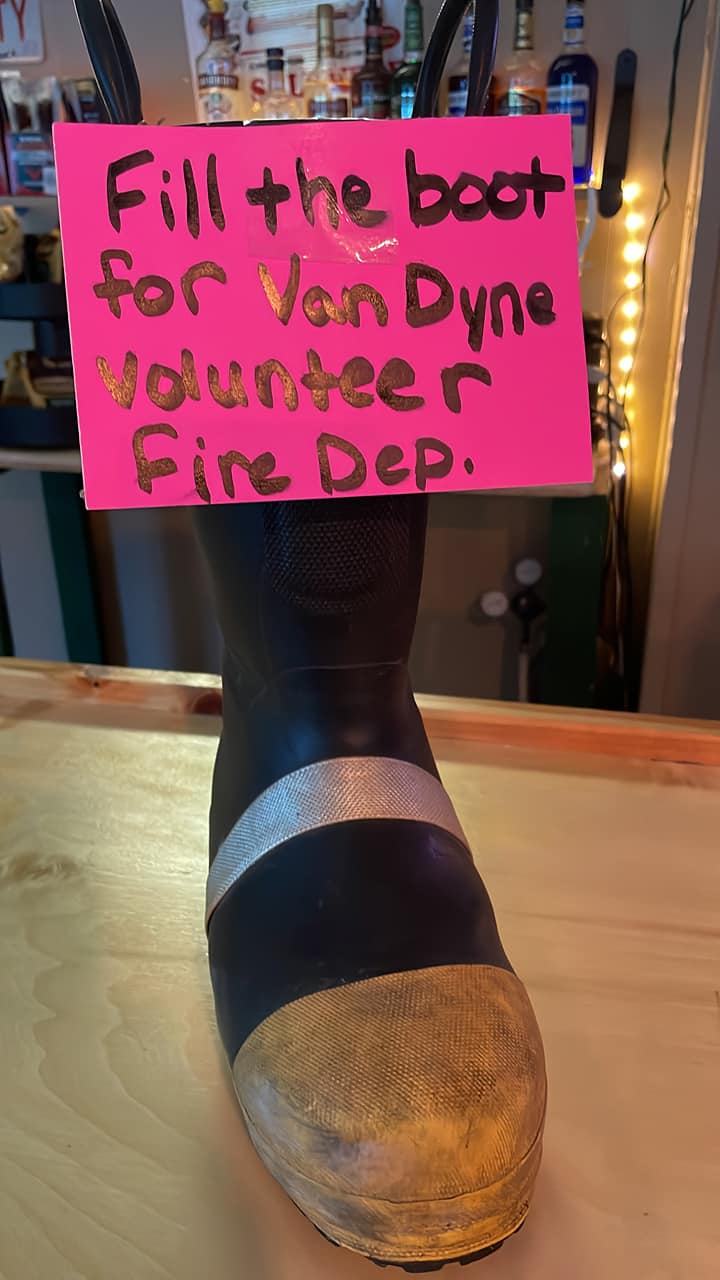 Fill the boot
for Van Dyne
volunteer
Fire Dep.